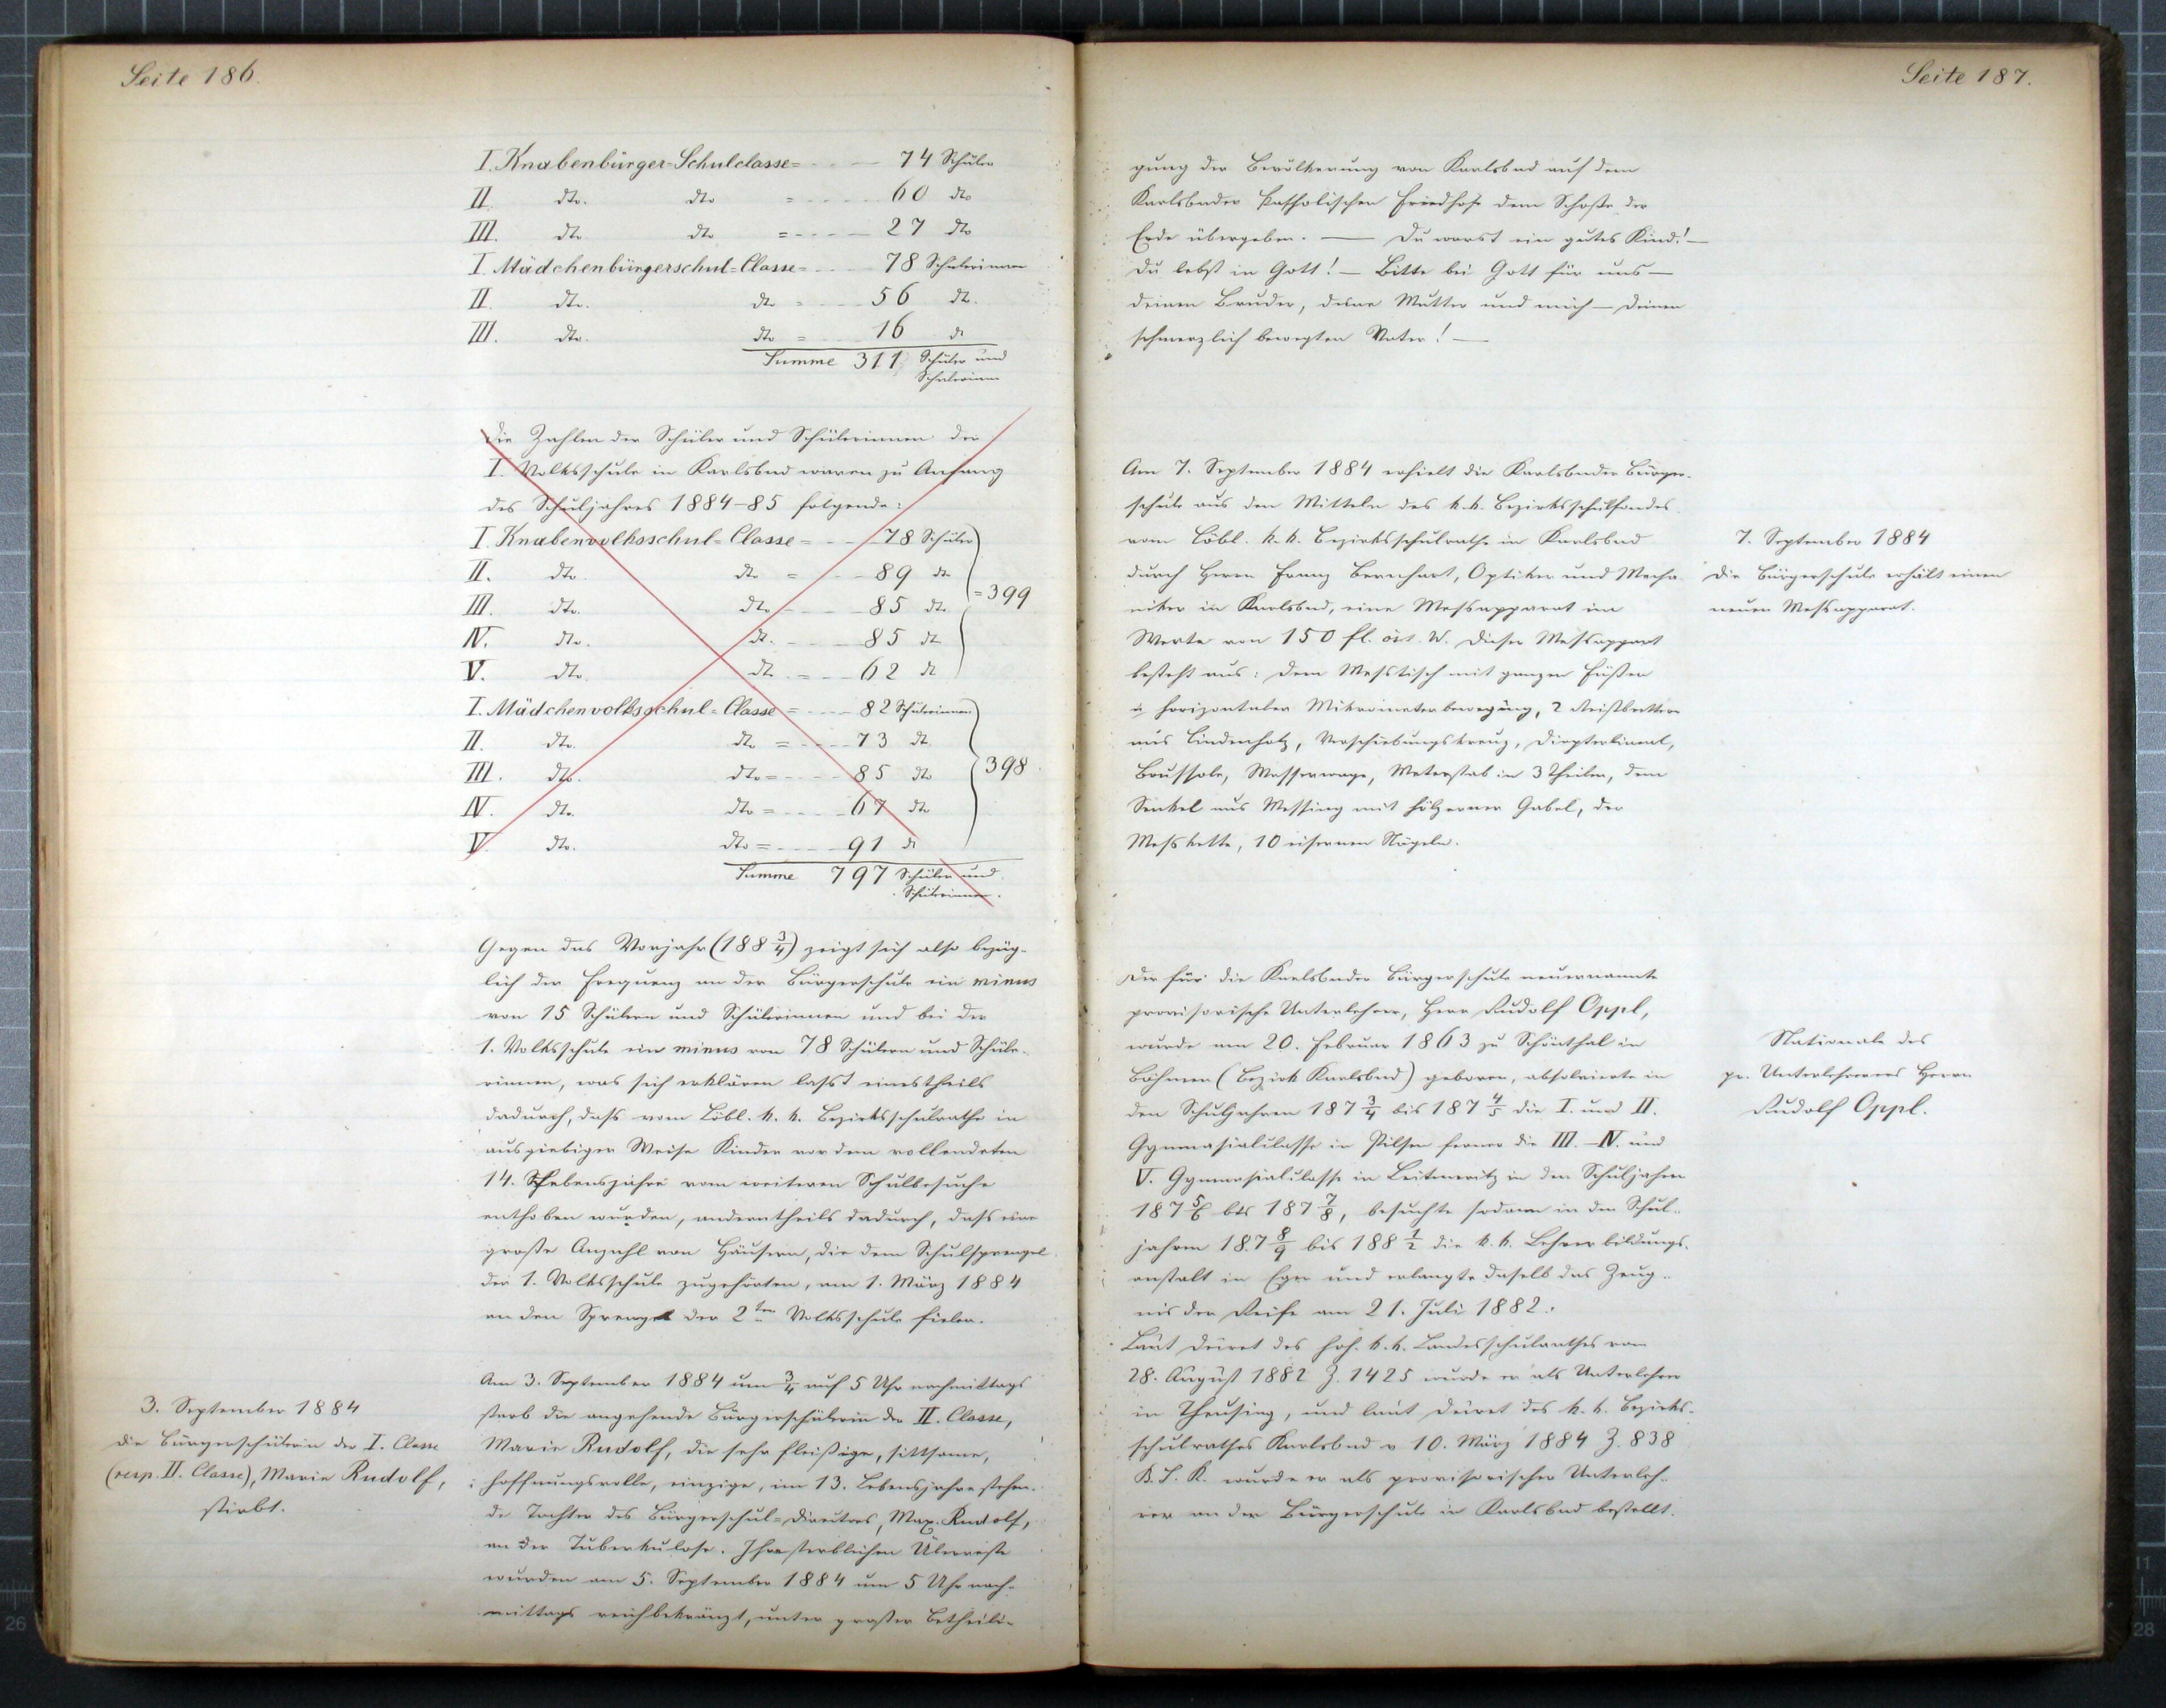 Seite 186.
I. Knabenbürger-Schulclasse = - - - 74 Schüler
II. dto. dto = - - - - 60 dto
III. dto. dto = - - - - 27 dto
I. Mädchenbürgerschul-Classe = - - - 78 Schülerinnen
II. dto. dto = - - - 56 dt.
III. dto. dto = - - - 16 dt
Summe 311 Schüler und
Schülerinen
Die Zahlen der Schüler und Schülerinnen der
I. Volksschule in Karlsbad waren zu Anfang
des Schuljahres 1884-85 folgende:
I. Knabenvolksschul-Classe = - - - 78 Schüler
II. dto. dto = - - - 89 dto
III. dto. dto - - - - 85 dto
= 399
IV. dto. dt. - - - - 85 dt
V. dto. dto. = - - - 62 dt
I. Mädchenvolksschul-Classe = - - - 82 Schülerinnen
II. dto. dto = - - - 73 dt
III. dto. dto = - - - 85 dto
398
IV. dto. dto = - - - - 67 dto
V. dto. dto = - - - - 91 dt
Summe 797 Schüler und
Schülerinnen.
Gegen das Vorjahr (188 3/4) zeigt sich also bezüg-
lich der Frequenz an der Bürgerschule ein minus
von 15 Schülern und Schülerinnen und bei der
1. Volksschule ein minus von 78 Schülern und Schüle-
rinnen, was sich erklären lasst einestheils
dadurch, dass vom Löbl. k. k. Bezirksschulrathe in
ausgiebiger Weise Kinder vor dem vollendeten
14. Lebensjahre vom weiteren Schulbesuche
enthoben wurden, anderntheils dadurch, dass eine
große Anzahl von Häusern, die dem Schulsprengel
der 1. Volksschule zugehörten, am 1. März 1884
an den Sprengel der 2ten Volksschule fielen.
3. September 1884
Die Bürgerschülerin der I. Classe
(resp. II. Classe), Marie Rudolf,
stirbt.
Am 3. September 1884 um 3/4 auf 5 Uhr nachmittags
starb die angehende Bürgerschülerin der II. Classe,
Marie Rudolf, die sehr fleißige, sittsame,
hoffnungsvolle, einzige, im 13. Lebensjahre stehen-
de Tochter des Bürgerschul-Directors, Max. Rudolf,
an der Tuberkulose. Ihre sterblichen Überreste
wurden am 5. September 1884 um 5 Uhr nach-
mittags reichbekränzt, unter großer Betheili-
Seite 187.
gung der Bevölkerung von Karlsbad auf dem
Karlsbader katholischen Friedhofe dem Schoße der
Erde übergeben. — Du warst ein gutes Kind! —
Du lebst in Gott! — Bitte bei Gott für uns —
deinen Bruder, deine Mutter und mich — deinen
schmerzlich bewegten Vater! —
Am 7. September 1884 erhielt die Karlsbader Bürger-
schule aus den Mitteln des k. k. Bezirksschulfondes
vom Löbl. k. k. Bezirksschulrathe in Karlsbad
durch Herrn Franz Bernhart, Optiker und Mecha-
niker in Karlsbad, eine Messapparat im
Werte von 150 fl. öst. W. Dieser Messappart
besteht aus: Dem Messtisch mit ganzen Füßen
u horizontaler Mikrometerbewegung, 2 Reißbretter
aus Lindenholz, Verschiebungskreuz, Diopterlineal,
Boussole, Wasserwage, Meterstab in 3 Theilen, dem
Senkel aus Messing mit hölzerner Gabel, der
Messkette, 10 eisernen Nägeln.
7. September 1884
Die Bürgerschule erhält einen
neuen Messapparat.
Der für die Karlsbader Bürgerschule neuernannte
provisorische Unterlehrer, Herr Rudolf Oppl,
wurde am 20. Februar 1863 zu Schönthal in
Böhmen (Bezirk Karlsbad) geboren, absolvierte in
den Schuljahren 187 3/4 bis 187 4/5 die I. und II.
Gymnasialclasse in Pilsen ferner die III. - IV. und
V. Gymnasialclasse in Leitmeritz in den Schuljahren
187 5/6 bis 187 7/8, besuchte sodann in den Schul-
jahren 187 8/9 bis 188 1/2 die k. k. Lehrerbildungs-
anstalt in Eger und erlangte daselb das Zeug-
nis der Reife am 21. Juli 1882.
Laut Decret des hoh. k. k. Landesschulrathes vom
28. August 1882 Z. 1425 wurde er als Unterlehrer
in Theusing, und laut Decret des k. k. Bezirks-
schulrathes Karlsbad v 10. März 1884 Z. 838
B. S. R. wurde er als provisorischer Unterleh-
rer an der Bürgerschule in Karlsbad bestellt.
Nationale des
pr. Unterlehrers Herrn
Rudolf Oppl.